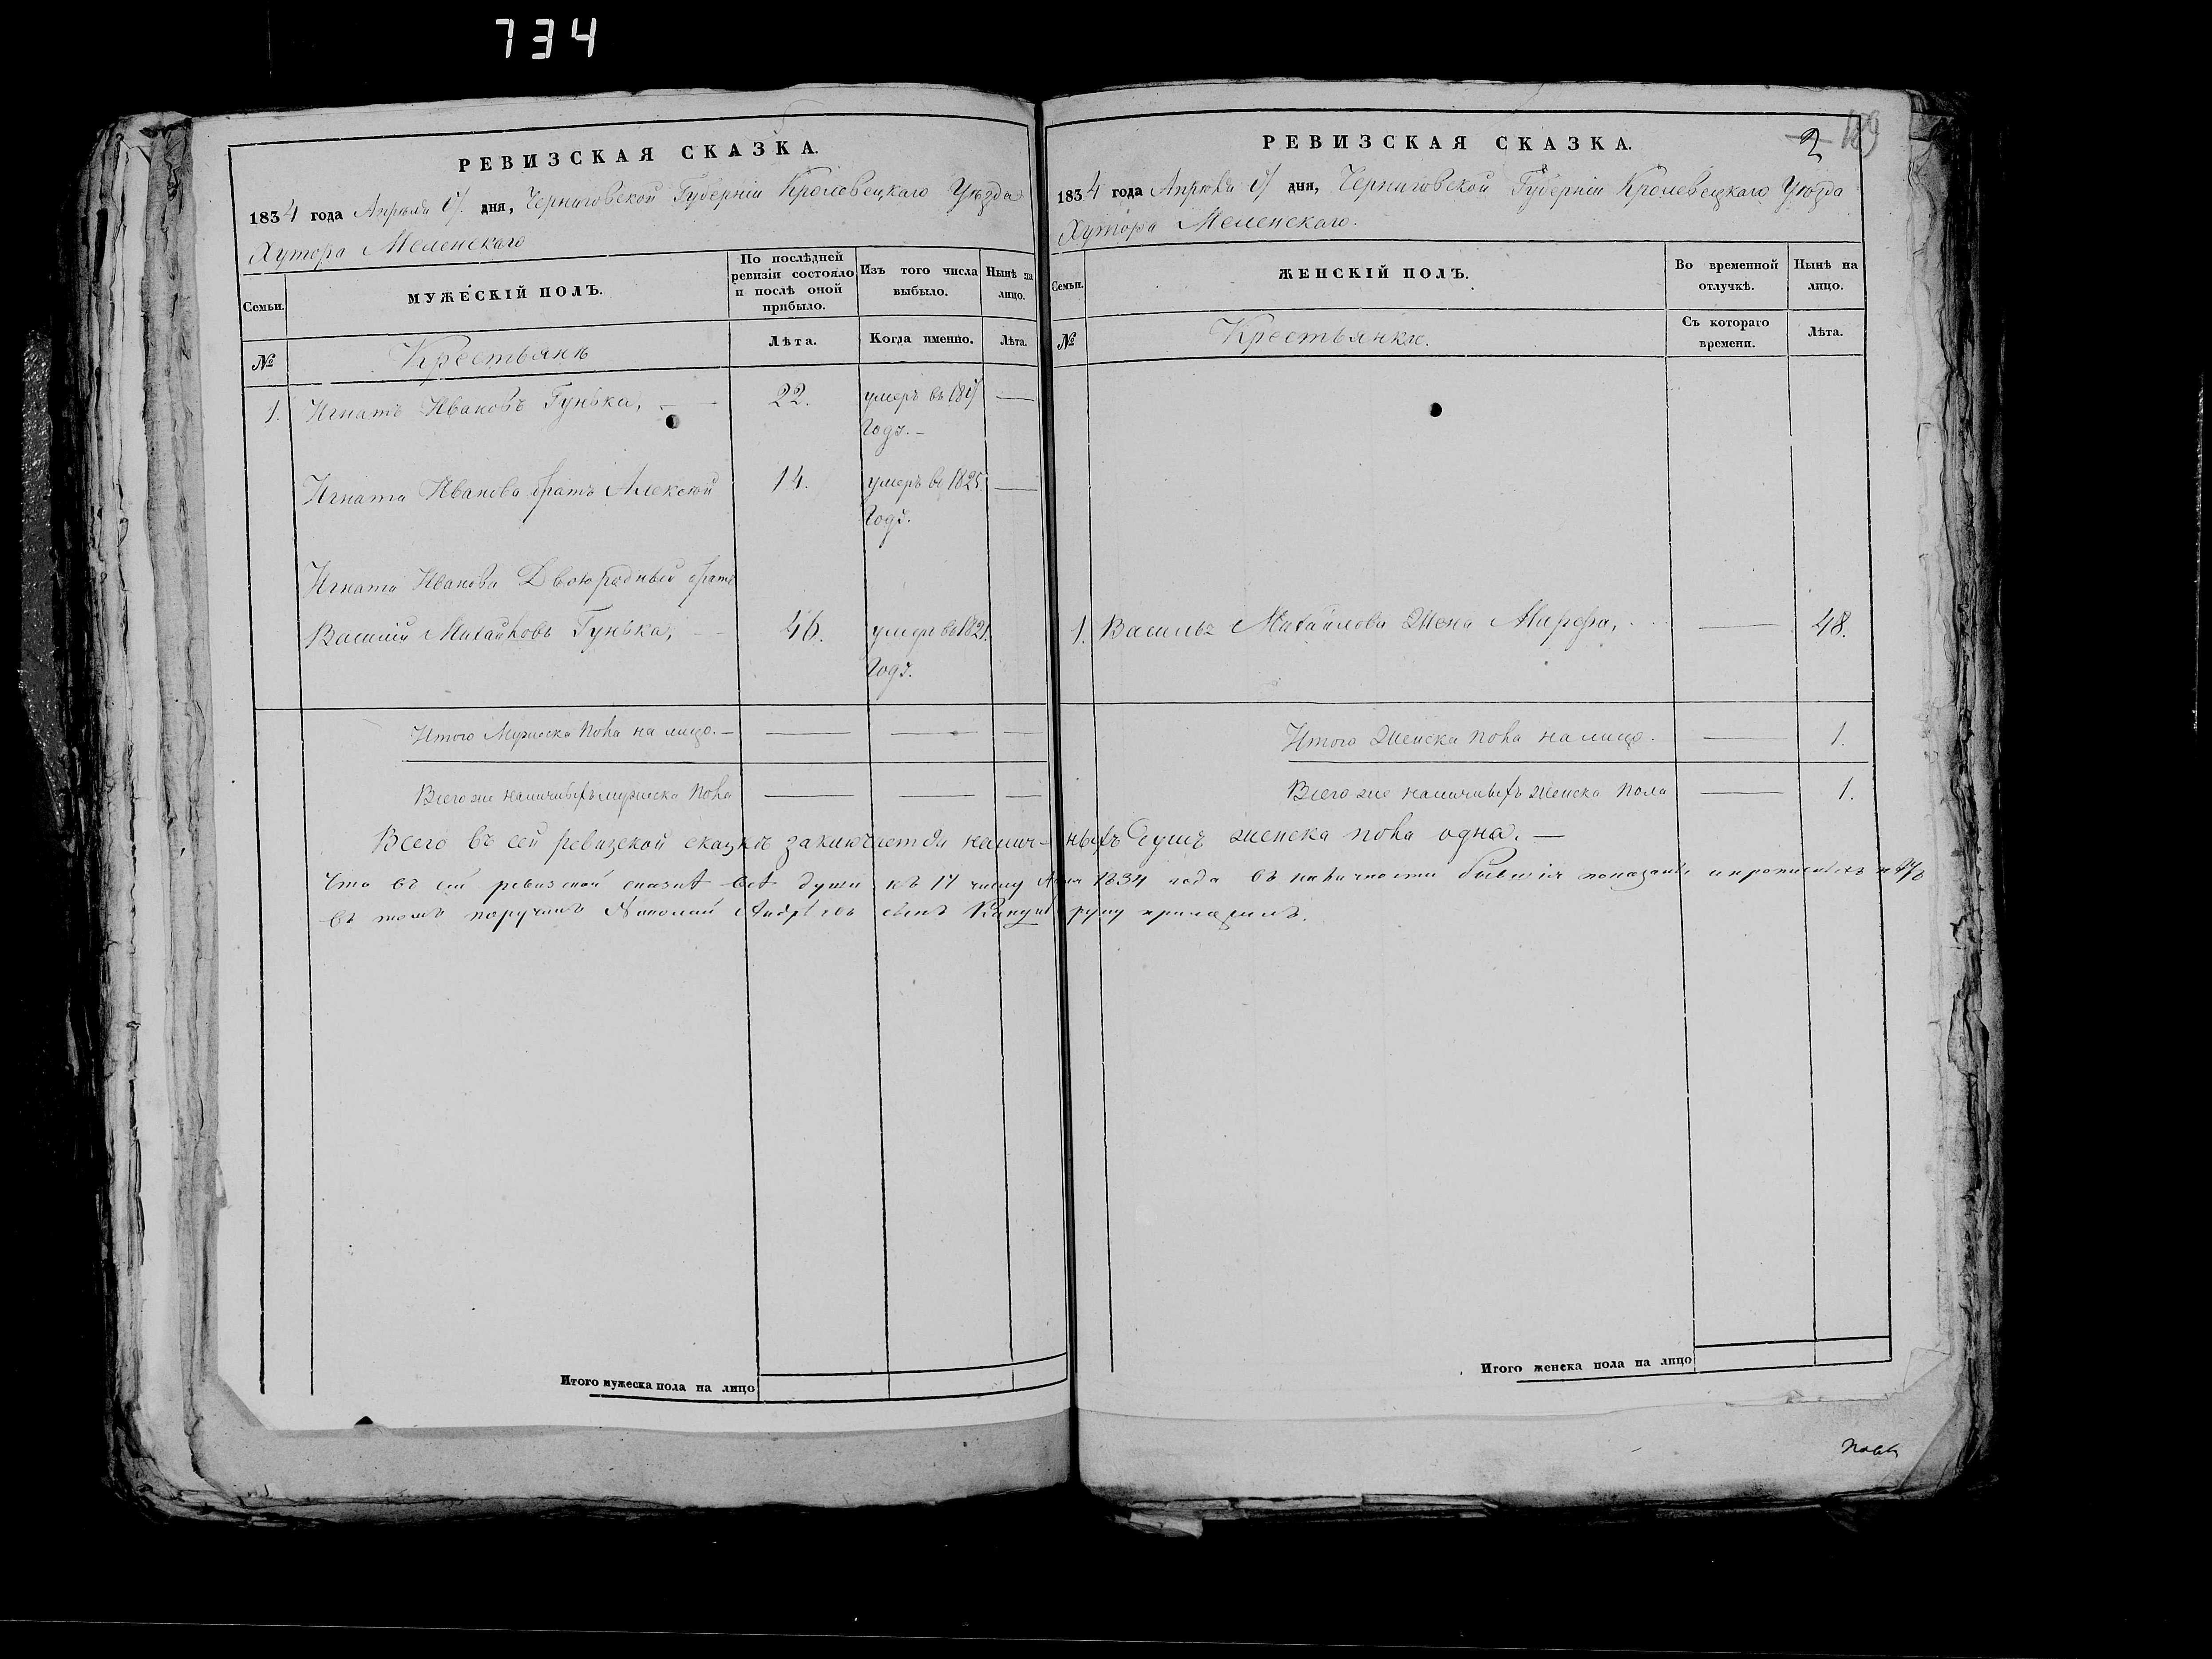 734
РЕВИЗСКАЯ СКАЗКА.
1834 года Апреля дня, Черниговской Губерніи Кролевецкаго Уѣзда
Хутора Меленскаго
Семьи.
МУЖЕСКІЙ ПОЛЪ.
По послѣдней ревизіи состояло и послѣ оной прибыло.
Изъ того числа выбыло.
Нынѣ на лицо.
№
Крестьяне
Лѣта.
Когда именно.
Лѣта.
1. Игнатъ Ивановъ Гунька, 22. умеръ въ
Годѣ.
Игната Иванова братъ Алексѣй 14. умеръ въ 1825
Годѣ.
Игната Иванова Двоюродный братъ
Василий Михайловъ Гунька, 46. умеръ въ 1821
Годѣ.
Итого Мужеска пола на лицо.
Всего же наличныхъ мужеска пола
РЕВИЗСКАЯ СКАЗКА.
2 189
1834 года Апрѣля дня, Черниговской Губерніи Кролевецкаго Уѣзда
Хутора Меленскаго.
Семьи.
ЖЕНСКІЙ ПОЛЪ.
Во временной отлучкѣ.
Нынѣ на лицо.
№
Крестьянки.
Съ котораго времени.
Лѣта.
1. Василья Михайлова Жена 48.
Итого Женска пола на лицо. 1.
Всего же наличныхъ женска пола 1.
Всего въ сей ревизской сказкѣ заключается налич-ныхъ душъ женска пола одна.
Что въ сей ревизской сказкѣ всѣ души къ числу 1834 года въ наличности бывшія показаны
въ томъ Николай сынъ руку приложилъ.
Итого мужеска пола на лицо
Итого женска пола на лицо